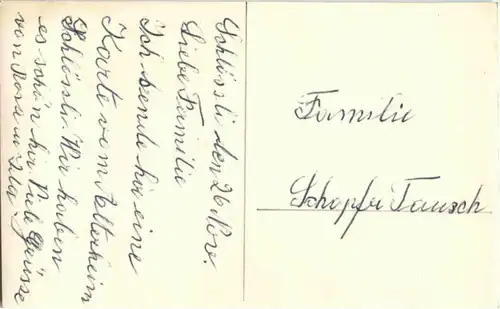 Schlössli den 26 Nov.
Liebe Familie
Ich sende hir eine
Karte vom Alterheim
Schlössli. Wir haben
es schön hir. Viele Grüsse
von Rosa u. Ida
Familie
Schopfer Tausch